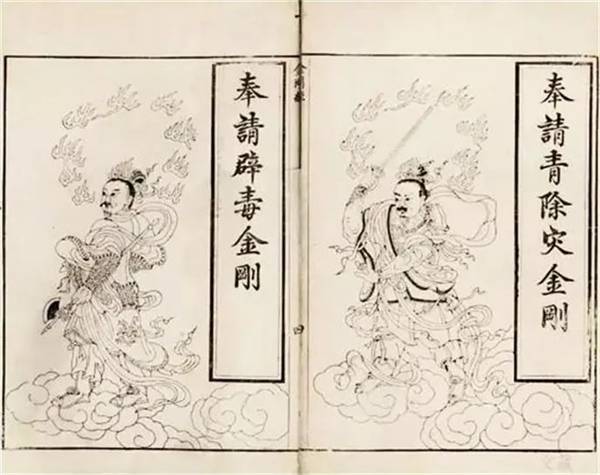 奉請青除災金剛
金剛經
四
奉請辟毒金剛